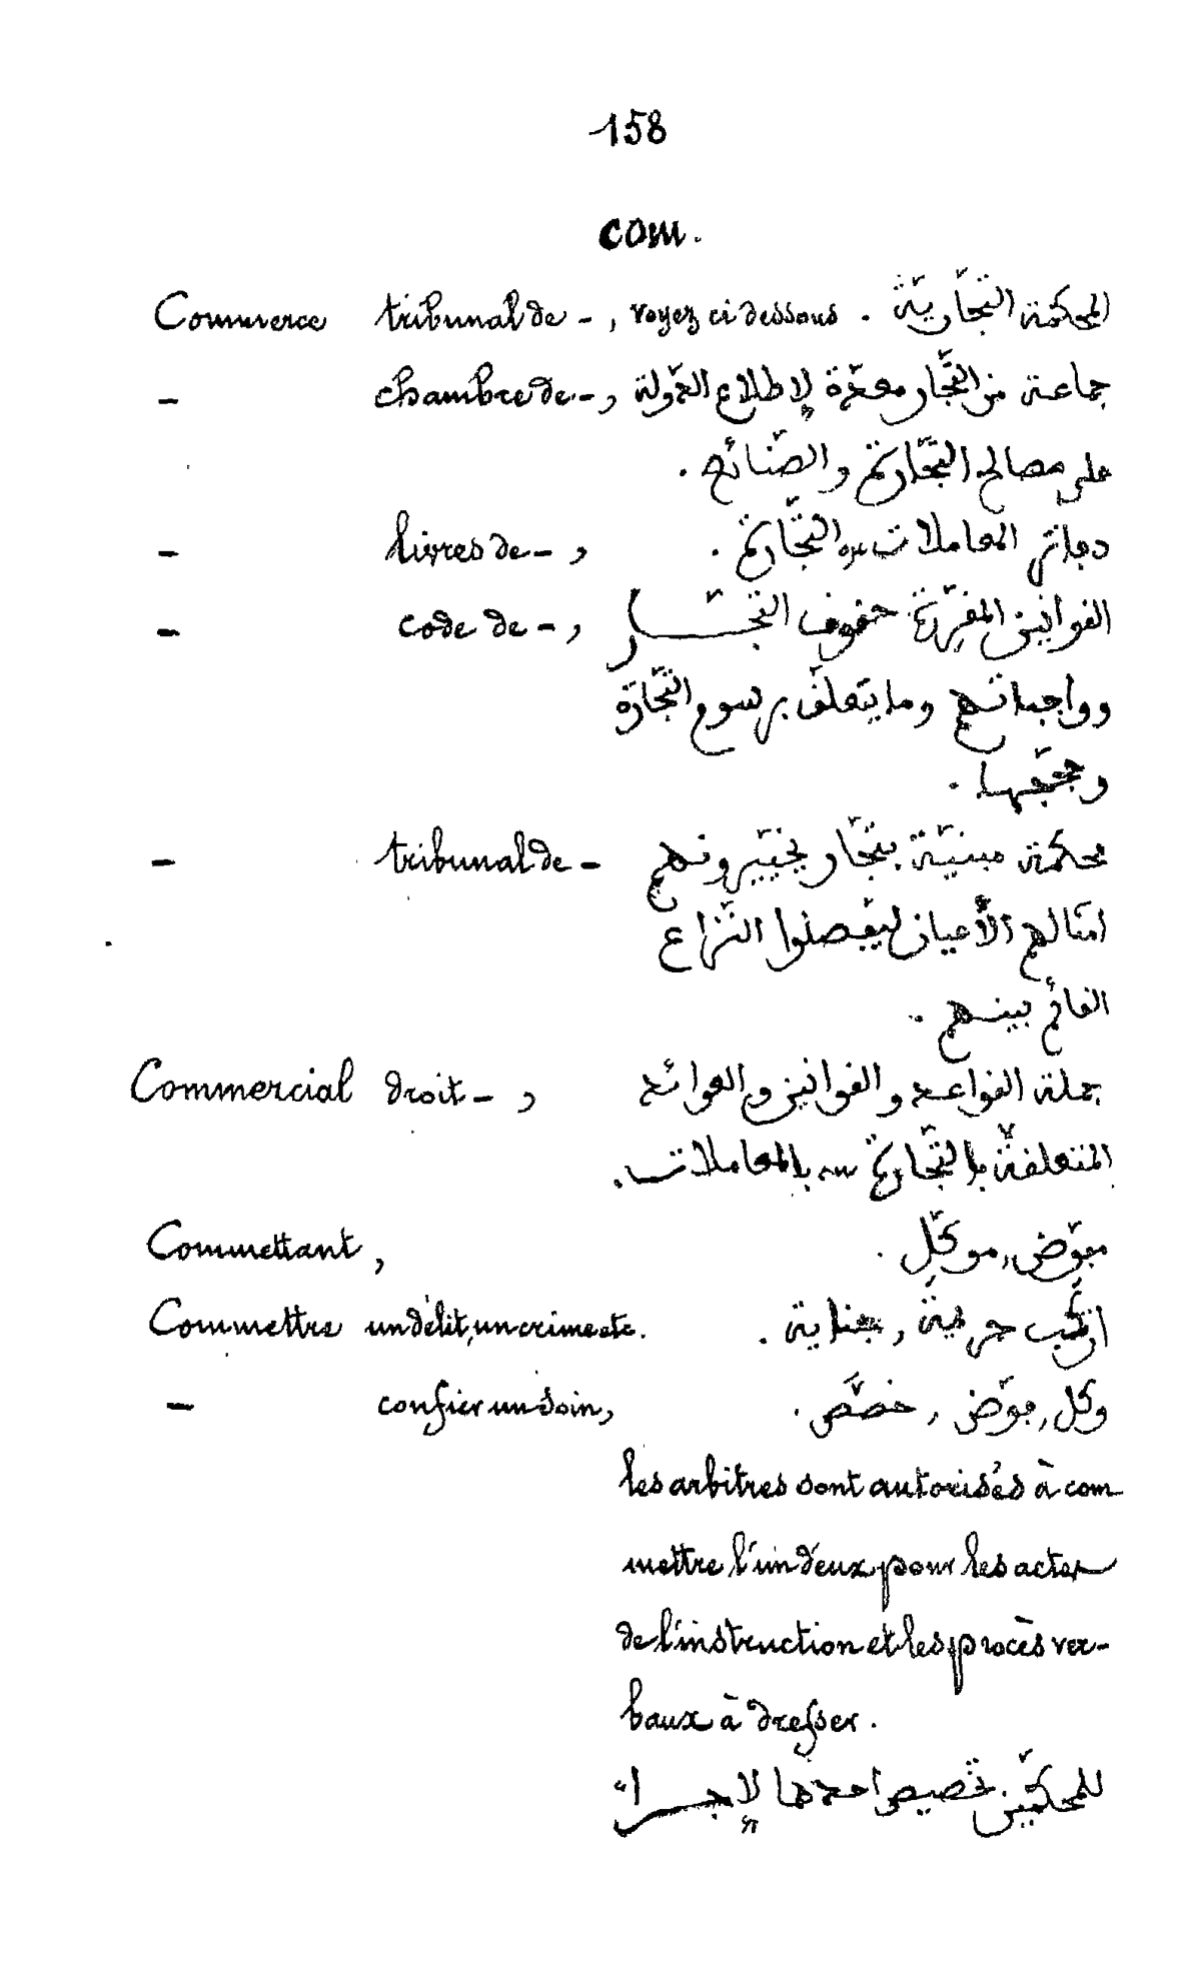 158
com.
Commerce tribunal de -, voyez ci dessous. المحكمة التجّاريّة
- chambre de -, جماعة من التّجّار معدّة لإطلاع الدّولة
على مصالح التّجّارة والصّنائع.
- livres de -, دفاتر المعاملات التّجّارة.
- code de -, القوانين المقرّرة حقوق التّجّـار
وواجباتهم وما يتعلّق برسوم التّجّارة
وحججها.
- tribunal de - محكمة مبنيّة بتجّار يخيّرونهم
امثالهم الأعيان ليفصلوا النّزاع
القائم بينهم.
Commercial droit -, جملة القواعد والقوانين والعوائد
المتعلّقة بالتّجّارة بالمعاملات.
Commettant, مفوّض, موكّل.
Commettre un délit, un crime etc. ارتكب جريمة, جناية.
- confier un soin, وكّل, فوّض, خصّص.
les arbitres sont autorisés à com-
mettre l'un d'eux pour les actes
de l'instruction et les procès ver-
baux à dresser.
للمحكّمين تخصيص احدهما لإجراء